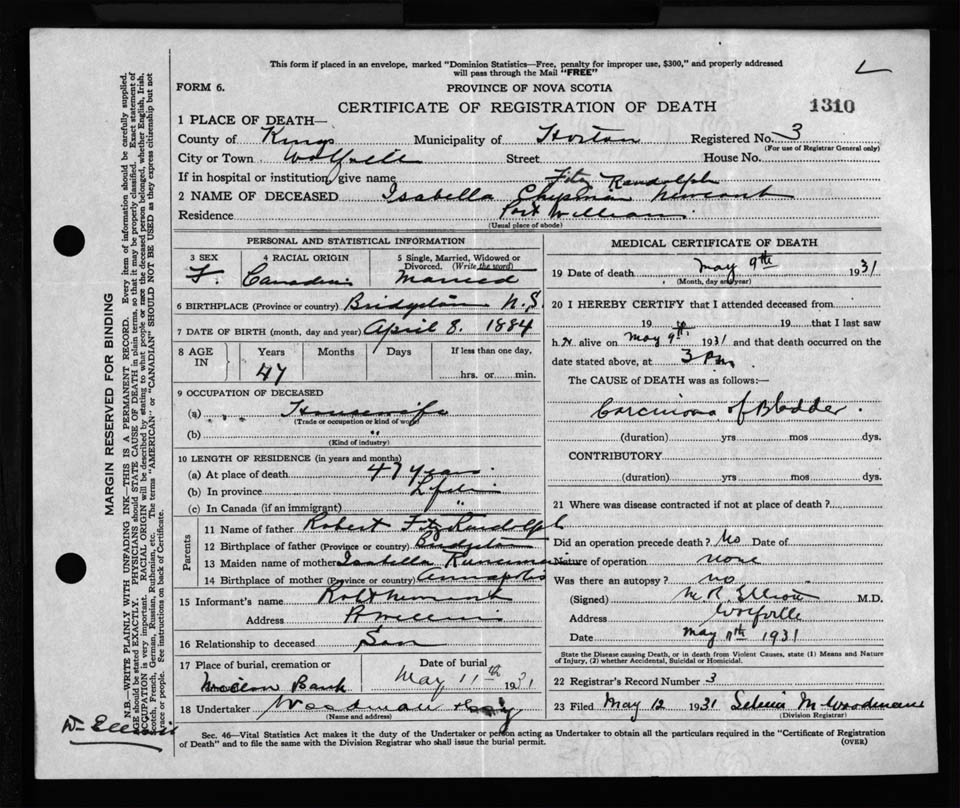 This form if placed in an envelope, marked "Dominion Statistics—Free, penalty for improper use, $300," and properly addressed
will pass through the Mail "FREE"
FORM 6.
PROVINCE OF NOVA SCOTIA
CERTIFICATE OF REGISTRATION OF DEATH
1310
1 PLACE OF DEATH—
County of Kings Municipality of Horton Registered No. 3
(For use of Registrar General only)
City or Town Wolfville Street House No.
If in hospital or institution, give name
Fitz Randolph
2 NAME OF DECEASED Isabella Chipman
Residence Port Williams
(Usual place of abode)
PERSONAL AND STATISTICAL INFORMATION
3 SEX F.
4 RACIAL ORIGIN Canadian
5 Single, Married, Widowed or Divorced. (Write the word) Married
6 BIRTHPLACE (Province or country) Bridgetown N.S.
7 DATE OF BIRTH (month, day and year) April 8. 1884
8 AGE IN Years Months Days If less than one day,
47 hrs. or min.
9 OCCUPATION OF DECEASED
(a) Housewife
(Trade or occupation or kind of work)
(b) "
(Kind of industry)
10 LENGTH OF RESIDENCE (in years and months)
(a) At place of death 47 years
(b) In province
(c) In Canada (if an immigrant) "
Parents
11 Name of father Robert Fitz Randolph
12 Birthplace of father (Province or country) Bridgetown
13 Maiden name of mother Isabella
14 Birthplace of mother (Province or country) Annapolis
15 Informant's name
Address
16 Relationship to deceased Son
17 Place of burial, cremation or Date of burial
Bank May 11th 1931
18 Undertaker Woodman
(Name and address)
MEDICAL CERTIFICATE OF DEATH
19 Date of death May 9th 1931
(Month, day and year)
20 I HEREBY CERTIFY that I attended deceased from
19 to 19 that I last saw
h er alive on May 9th 1931 and that death occurred on the
date stated above, at 3 Pm
The CAUSE of DEATH was as follows:—
Carcinoma of Bladder.
(duration) yrs mos dys.
CONTRIBUTORY
(duration) yrs mos dys.
21 Where was disease contracted if not at place of death?
Did an operation precede death? No Date of
Nature of operation none
Was there an autopsy? no
(Signed) M.R. Elliott M.D.
Address Wolfville
Date May 11th 1931
State the Disease causing Death, or in death from Violent Causes, state (1) Means and Nature
of Injury, (2) whether Accidental, Suicidal or Homicidal.
22 Registrar's Record Number 3
23 Filed May 12 1931 M Woodman
(Division Registrar)
Sec. 46—Vital Statistics Act makes it the duty of the Undertaker or person acting as Undertaker to obtain all the particulars required in the "Certificate of Registration
of Death" and to file the same with the Division Registrar who shall issue the burial permit.
(OVER)
MARGIN RESERVED FOR BINDING
N.B.—WRITE PLAINLY WITH UNFADING INK—THIS IS A PERMANENT RECORD. Every item of information should be carefully supplied.
AGE should be stated EXACTLY. PHYSICIANS should STATE CAUSE OF DEATH in plain terms, so that it may be properly classified. Exact statement of
OCCUPATION is very important. RACIAL ORIGIN will be described by stating to what people or race the deceased person belonged, whether English, Irish,
Scotch, French, German, Russian, Ruthenian, etc. The terms "AMERICAN" or "CANADIAN" SHOULD NOT BE USED as they express citizenship but not
race or people. See instructions on back of Certificate.